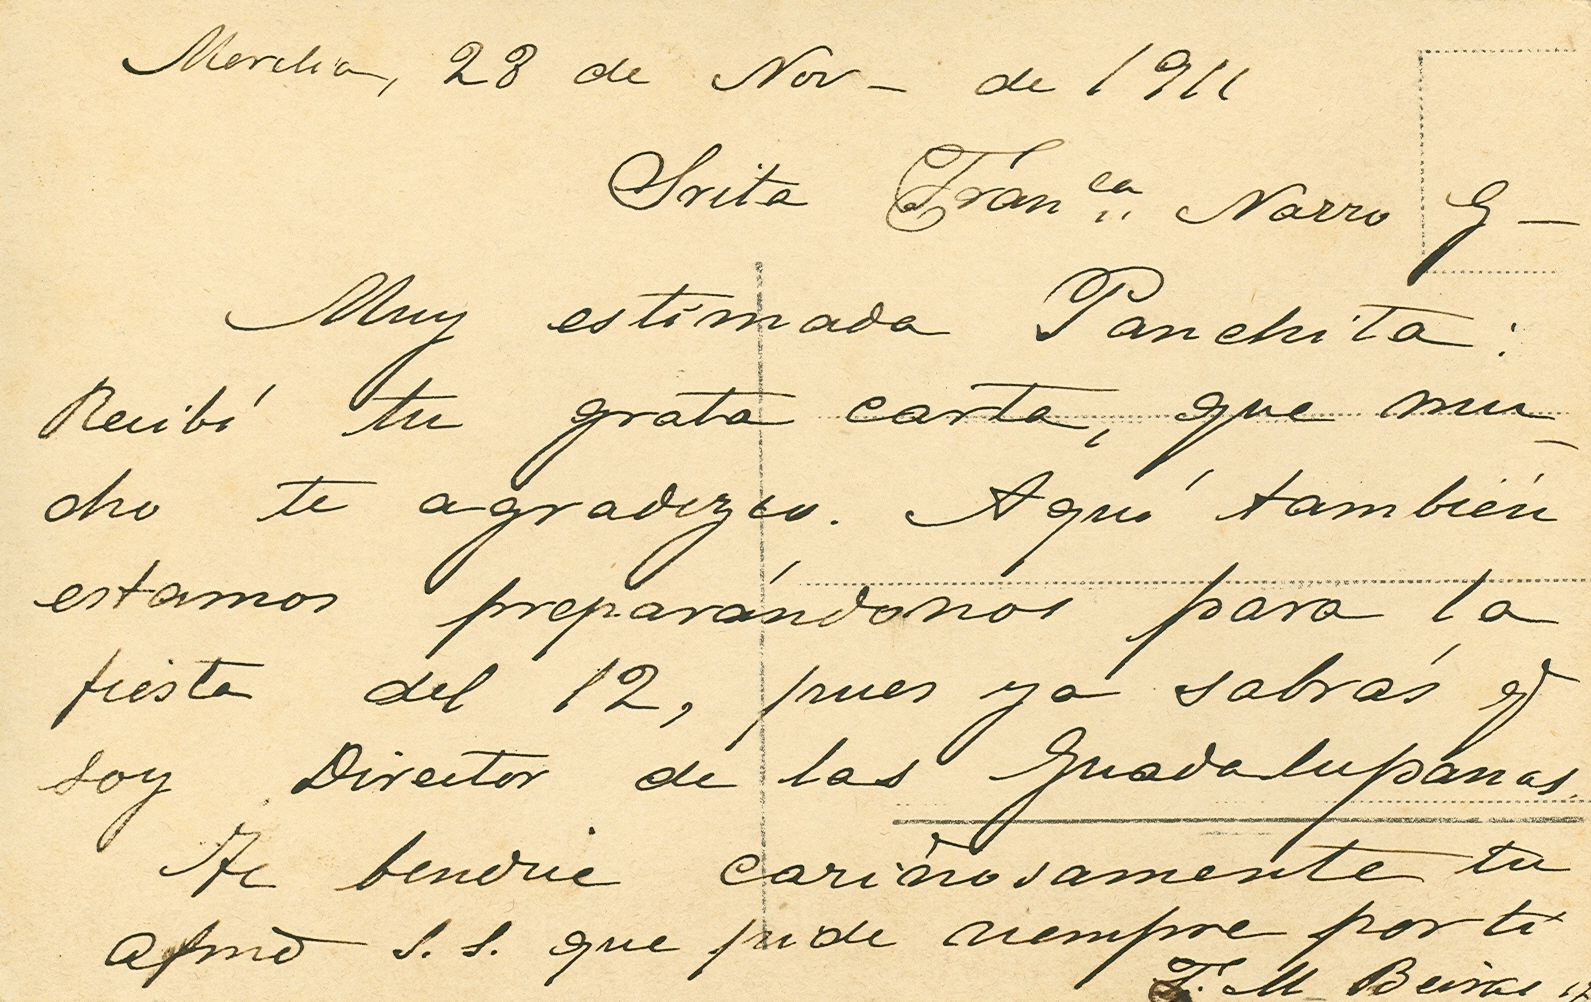 Morelia, 28 de Nov - de 1911
Srita Fran.ca Narro G -
Muy estimada Panchita :
Recibí tu grata carta, que mu-
cho te agradezco. Aquí también
estamos preparándonos para la
fiesta del 12, pues ya sabrás q
soy Director de las Guadalupanas.
Te bendice cariñosamente tu
afmo S. S. que pide siempre por ti
F. M.